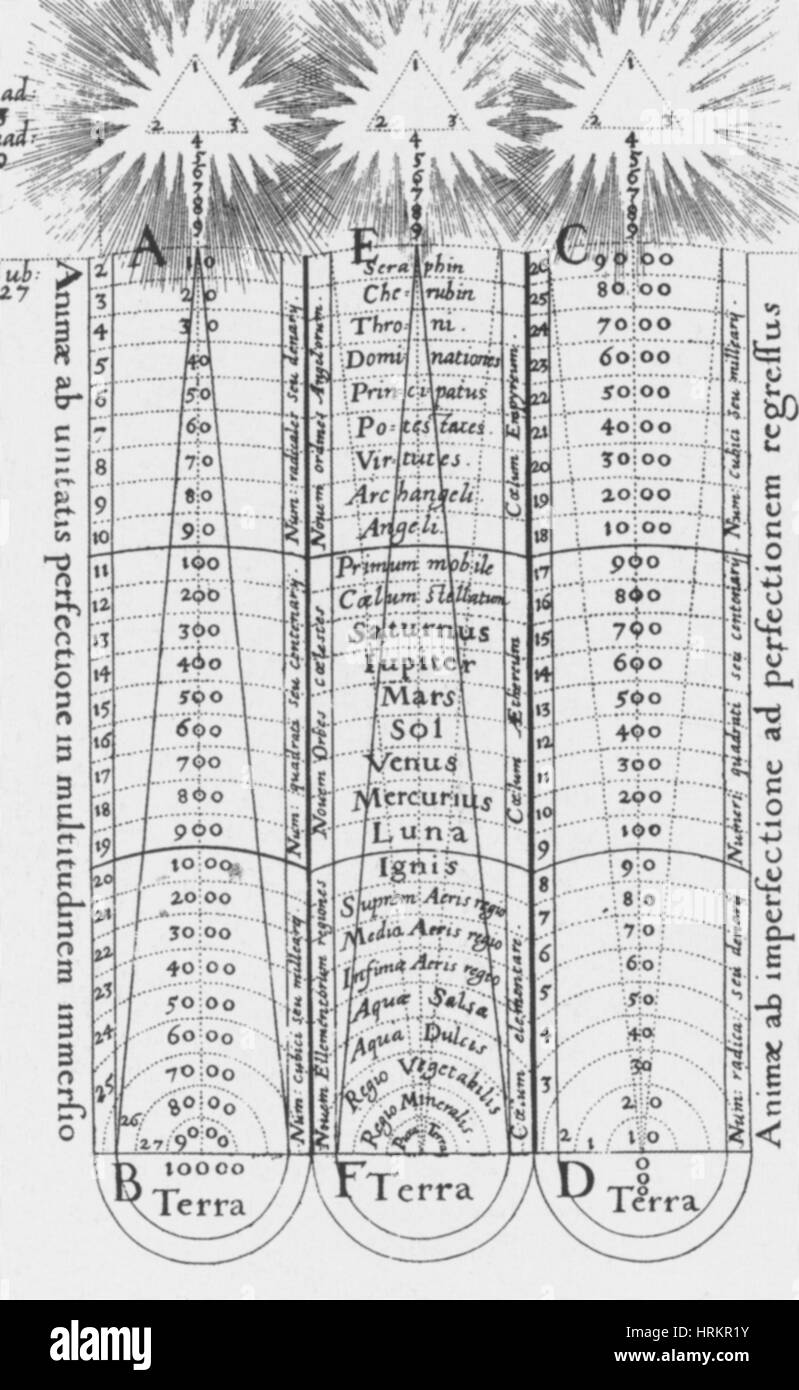 ad:
ad:
1
2 3
4
5
6
7
8
9
1
2 3
4
5
6
7
8
9
1
2 3
4
5
6
7
8
9
ub:
27
A
E
C
Animæ ab unitatis perfectione in multitudinem immersio
2 10
3 20
4 30
5 40
6 50
7 60
8 70
9 80
10 90
11 100
12 200
13 300
14 400
15 500
16 600
17 700
18 800
19 900
20 1000
21 2000
22 3000
23 4000
24 5000
6000
25 7000
26 8000
27 9000
10000
B Terra
Num: radicales seu denary.
Num quadrati seu centenary.
Num: cubici seu milleary
Novem ordines Angelorum.
Novem Orbes cœlestes
Novem Ellementorum regiones
Seraphin
Che=rubin
Throni.
Dominationes
Principatus
Po=testates.
Virtutes.
Archangeli.
Angeli.
Primum mobile
Cœlum stellatum
Saturnus
Iupiter
Mars
Sol
Venus
Mercurius
Luna
Ignis
Suprem Aeris regio
Media Aeris regio
Infima Aeris regio
Aquæ Salsa
Aqua Dulcis
Regio Vegetabilis
Regio Mineralis
Terra
F Terra
Cœlum Empyreum.
Cœlum Æthereum
Cœlum elementare.
26 9000
25 8000
24 7000
23 6000
22 5000
21 4000
20 3000
19 2000
18 1000
17 900
16 800
15 700
14 600
13 500
12 400
11 300
10 200
9 100
8 90
7 80
6 70
5 60
50
4 40
3 30
2 20
1 10
0
0
0
D Terra
Num: cubici seu milleary.
Numeri quadrati seu centenary.
Num: radica: seu denary
Animæ ab imperfectione ad perfectionem regressus
alamy
Image ID: HRKR1Y
www.alamy.com